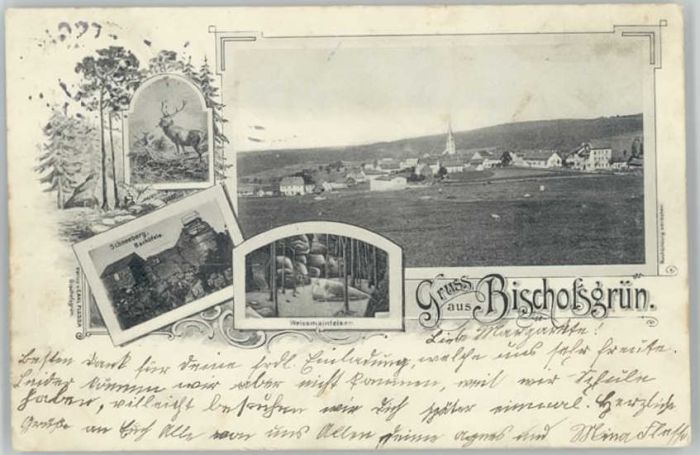 Schneeberg-
Backöfele.
Weissmainfelsen
Gruss
aus Bischofsgrün.
Liebe Margarethe!
Besten Dank für deine frdl. Einladung, welche uns sehr freute.
Leider können wir aber nicht kommen, weil wir Schule
haben, villeicht besuchen wir dich später einmal. Herzliche
Grüße an Euch Alle von uns Allen deine Agnes und Mina